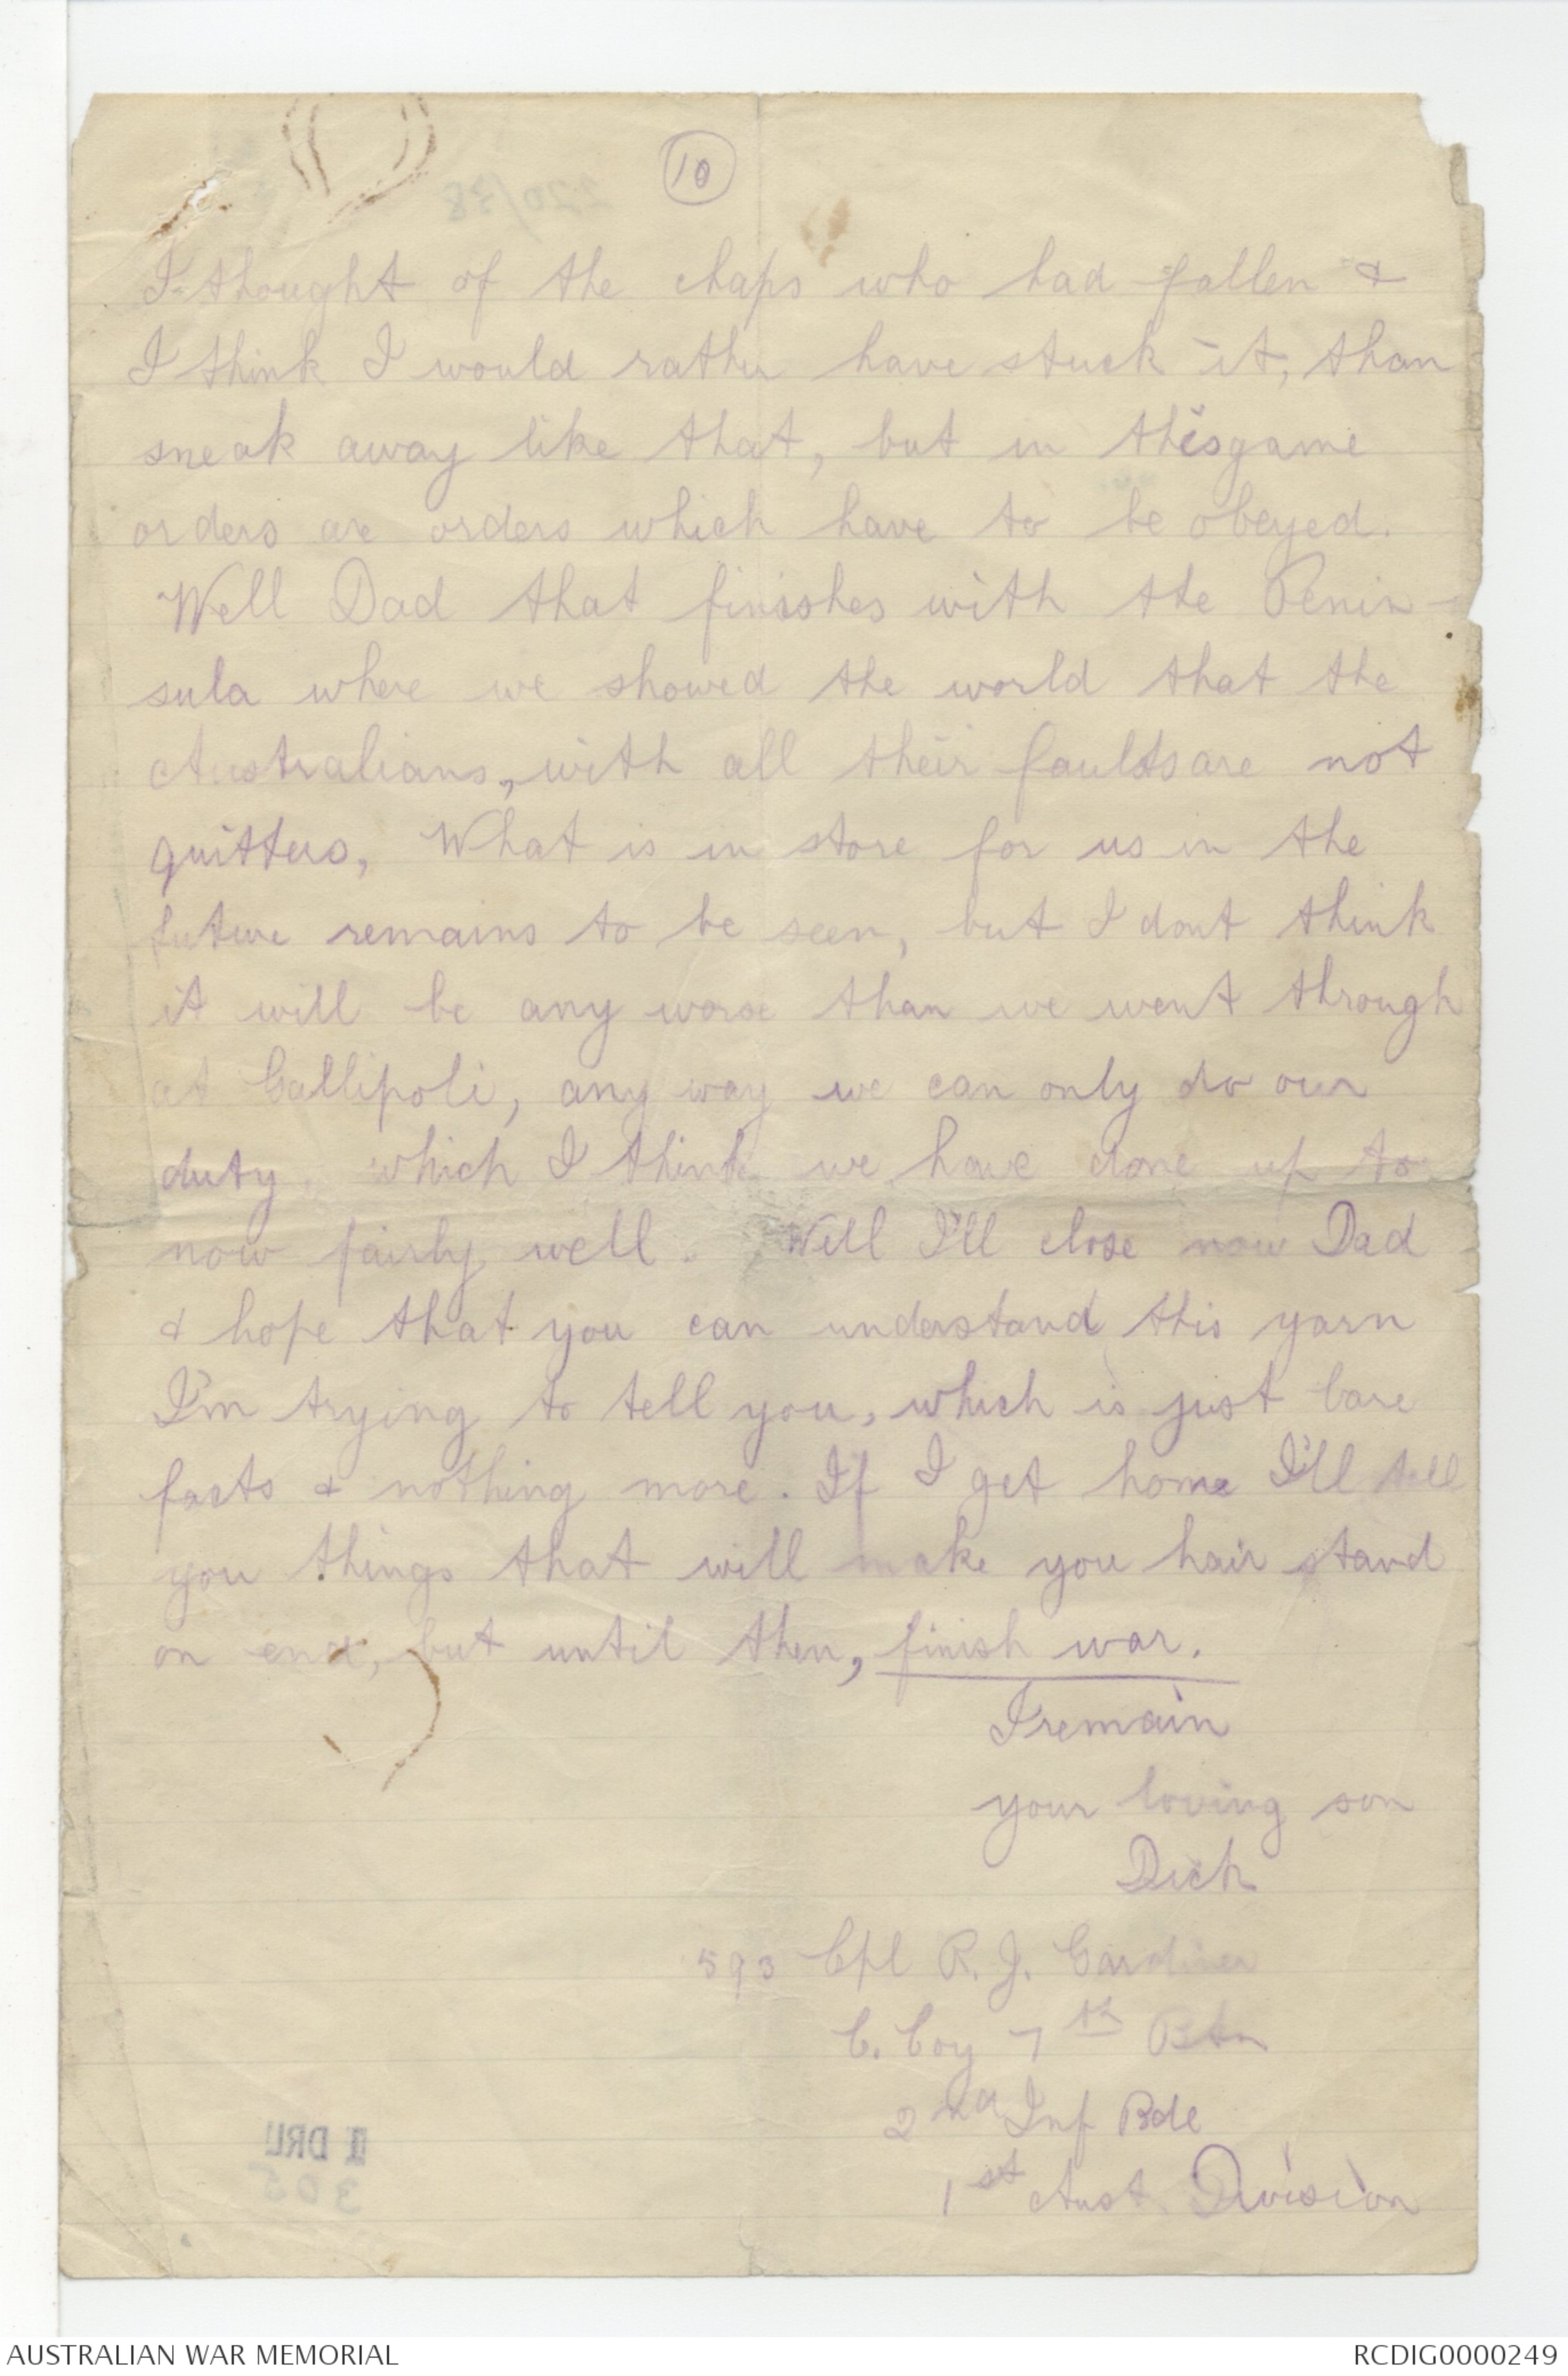 10
I thought of the chaps who had fallen &
I think I would rather have stuck it, than
sneak away like that, but in this game
orders are orders which have to be obeyed.
Well Dad that finishes with the Penin-
sula where we showed the world that the
Australians, with all their faults are not
quitters, What is in store for us in the
future remains to be seen, but I dont think
it will be any worse than we went through
at Gallipoli, any way we can only do our
duty, which I think we have done up to
now fairly well. Well I'll close now Dad
& hope that you can understand this yarn
I'm trying to tell you, which is just bare
facts & nothing more. If I get home I'll tell
you things that will make you hair stand
on end, but until then, finish war.
I remain
your loving son
Dick
593 Cpl R. J. Gardiner
C. Coy 7th Btn
2nd Inf Bde
1st Aust. Division
II DRL
305
AUSTRALIAN WAR MEMORIAL
RCDIG0000249